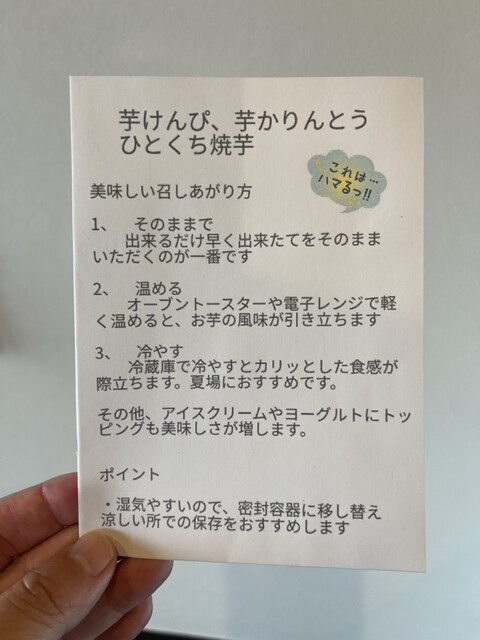 芋けんぴ、芋かりんとう
ひとくち焼芋
これは…
ハマるっ!!
美味しい召しあがり方
1、 そのままで
出来るだけ早く出来たてをそのまま
いただくのが一番です
2、 温める
オーブントースターや電子レンジで軽
く温めると、お芋の風味が引き立ちます
3、 冷やす
冷蔵庫で冷やすとカリッとした食感が
際立ちます。夏場におすすめです。
その他、アイスクリームやヨーグルトにトッ
ピングも美味しさが増します。
ポイント
・湿気やすいので、密封容器に移し替え
涼しい所での保存をおすすめします